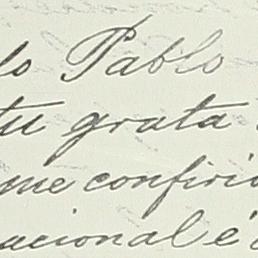 lo Pablo
tu grata
me confirio
acional é